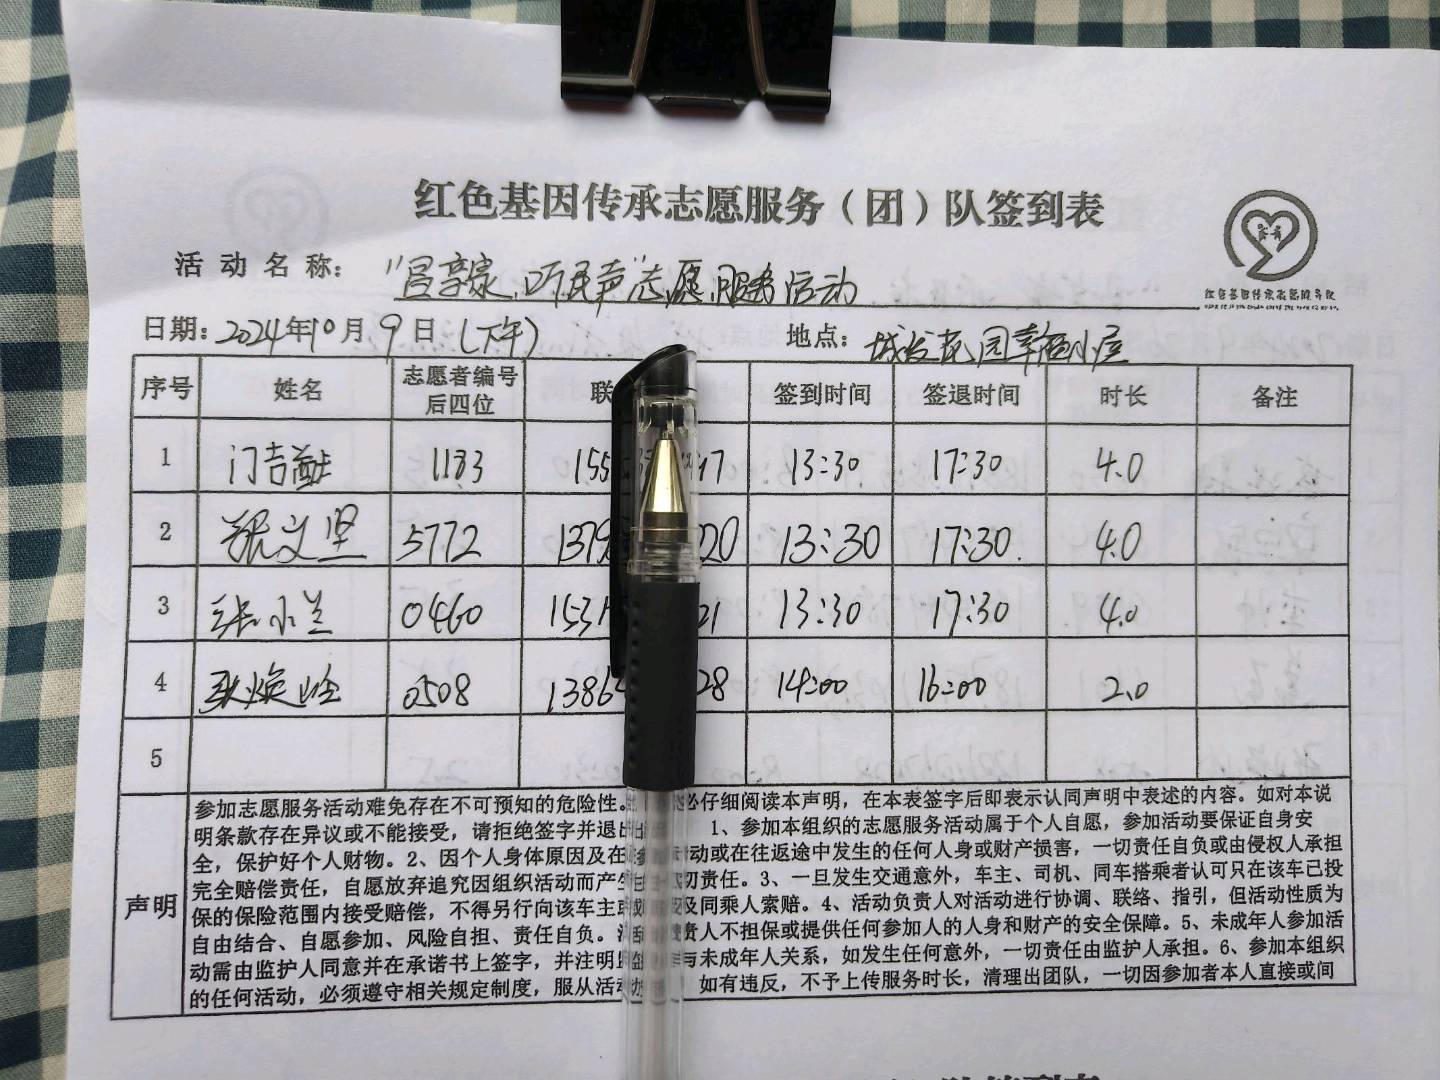 红色基因传承志愿服务（团）队签到表
活动名称：“吕享家，听民声”志愿服务活动
红色基因传承志愿服务队
日期：2024年10月9日（下午） 地点：城发花园幸福小屋
序号 姓名 志愿者编号后四位 联 签到时间 签退时间 时长 备注
1 门吉 1183 155 17 13:30 17:30 4.0
2 张文坚 5772 1379 20 13:30 17:30. 4.0
3 张小兰 0460 1531 21 13:30 17:30 4.0
4 焕 0508 1386 28 14:00 16:00 2.0
5
声明
参加志愿服务活动难免存在不可预知的危险性。 必仔细阅读本声明，在本表签字后即表示认同声明中表述的内容。如对本说
明条款存在异议或不能接受，请拒绝签字并退出 1、参加本组织的志愿服务活动属于个人自愿，参加活动要保证自身安
全，保护好个人财物。2、因个人身体原因及在 动或在往返途中发生的任何人身或财产损害，一切责任自负或由侵权人承担
完全赔偿责任，自愿放弃追究因组织活动而产生 切责任。3、一旦发生交通意外，车主、司机、同车搭乘者认可只在该车已投
保的保险范围内接受赔偿，不得另行向该车主 及同乘人索赔。4、活动负责人对活动进行协调、联络、指引，但活动性质为
自由结合、自愿参加、风险自担、责任自负。 责人不担保或提供任何参加人的人身和财产的安全保障。5、未成年人参加活
动需由监护人同意并在承诺书上签字，并注明 与未成年人关系，如发生任何意外，一切责任由监护人承担。6、参加本组织
的任何活动，必须遵守相关规定制度，服从活动 如有违反，不予上传服务时长，清理出团队，一切因参加者本人直接或间